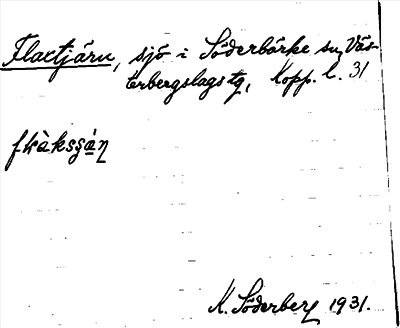 Flaxtjärn, sjö i Söderbärke sn, Väs-
terbergslags tg, Kopp. l. 31
K. Söderberg 1931.